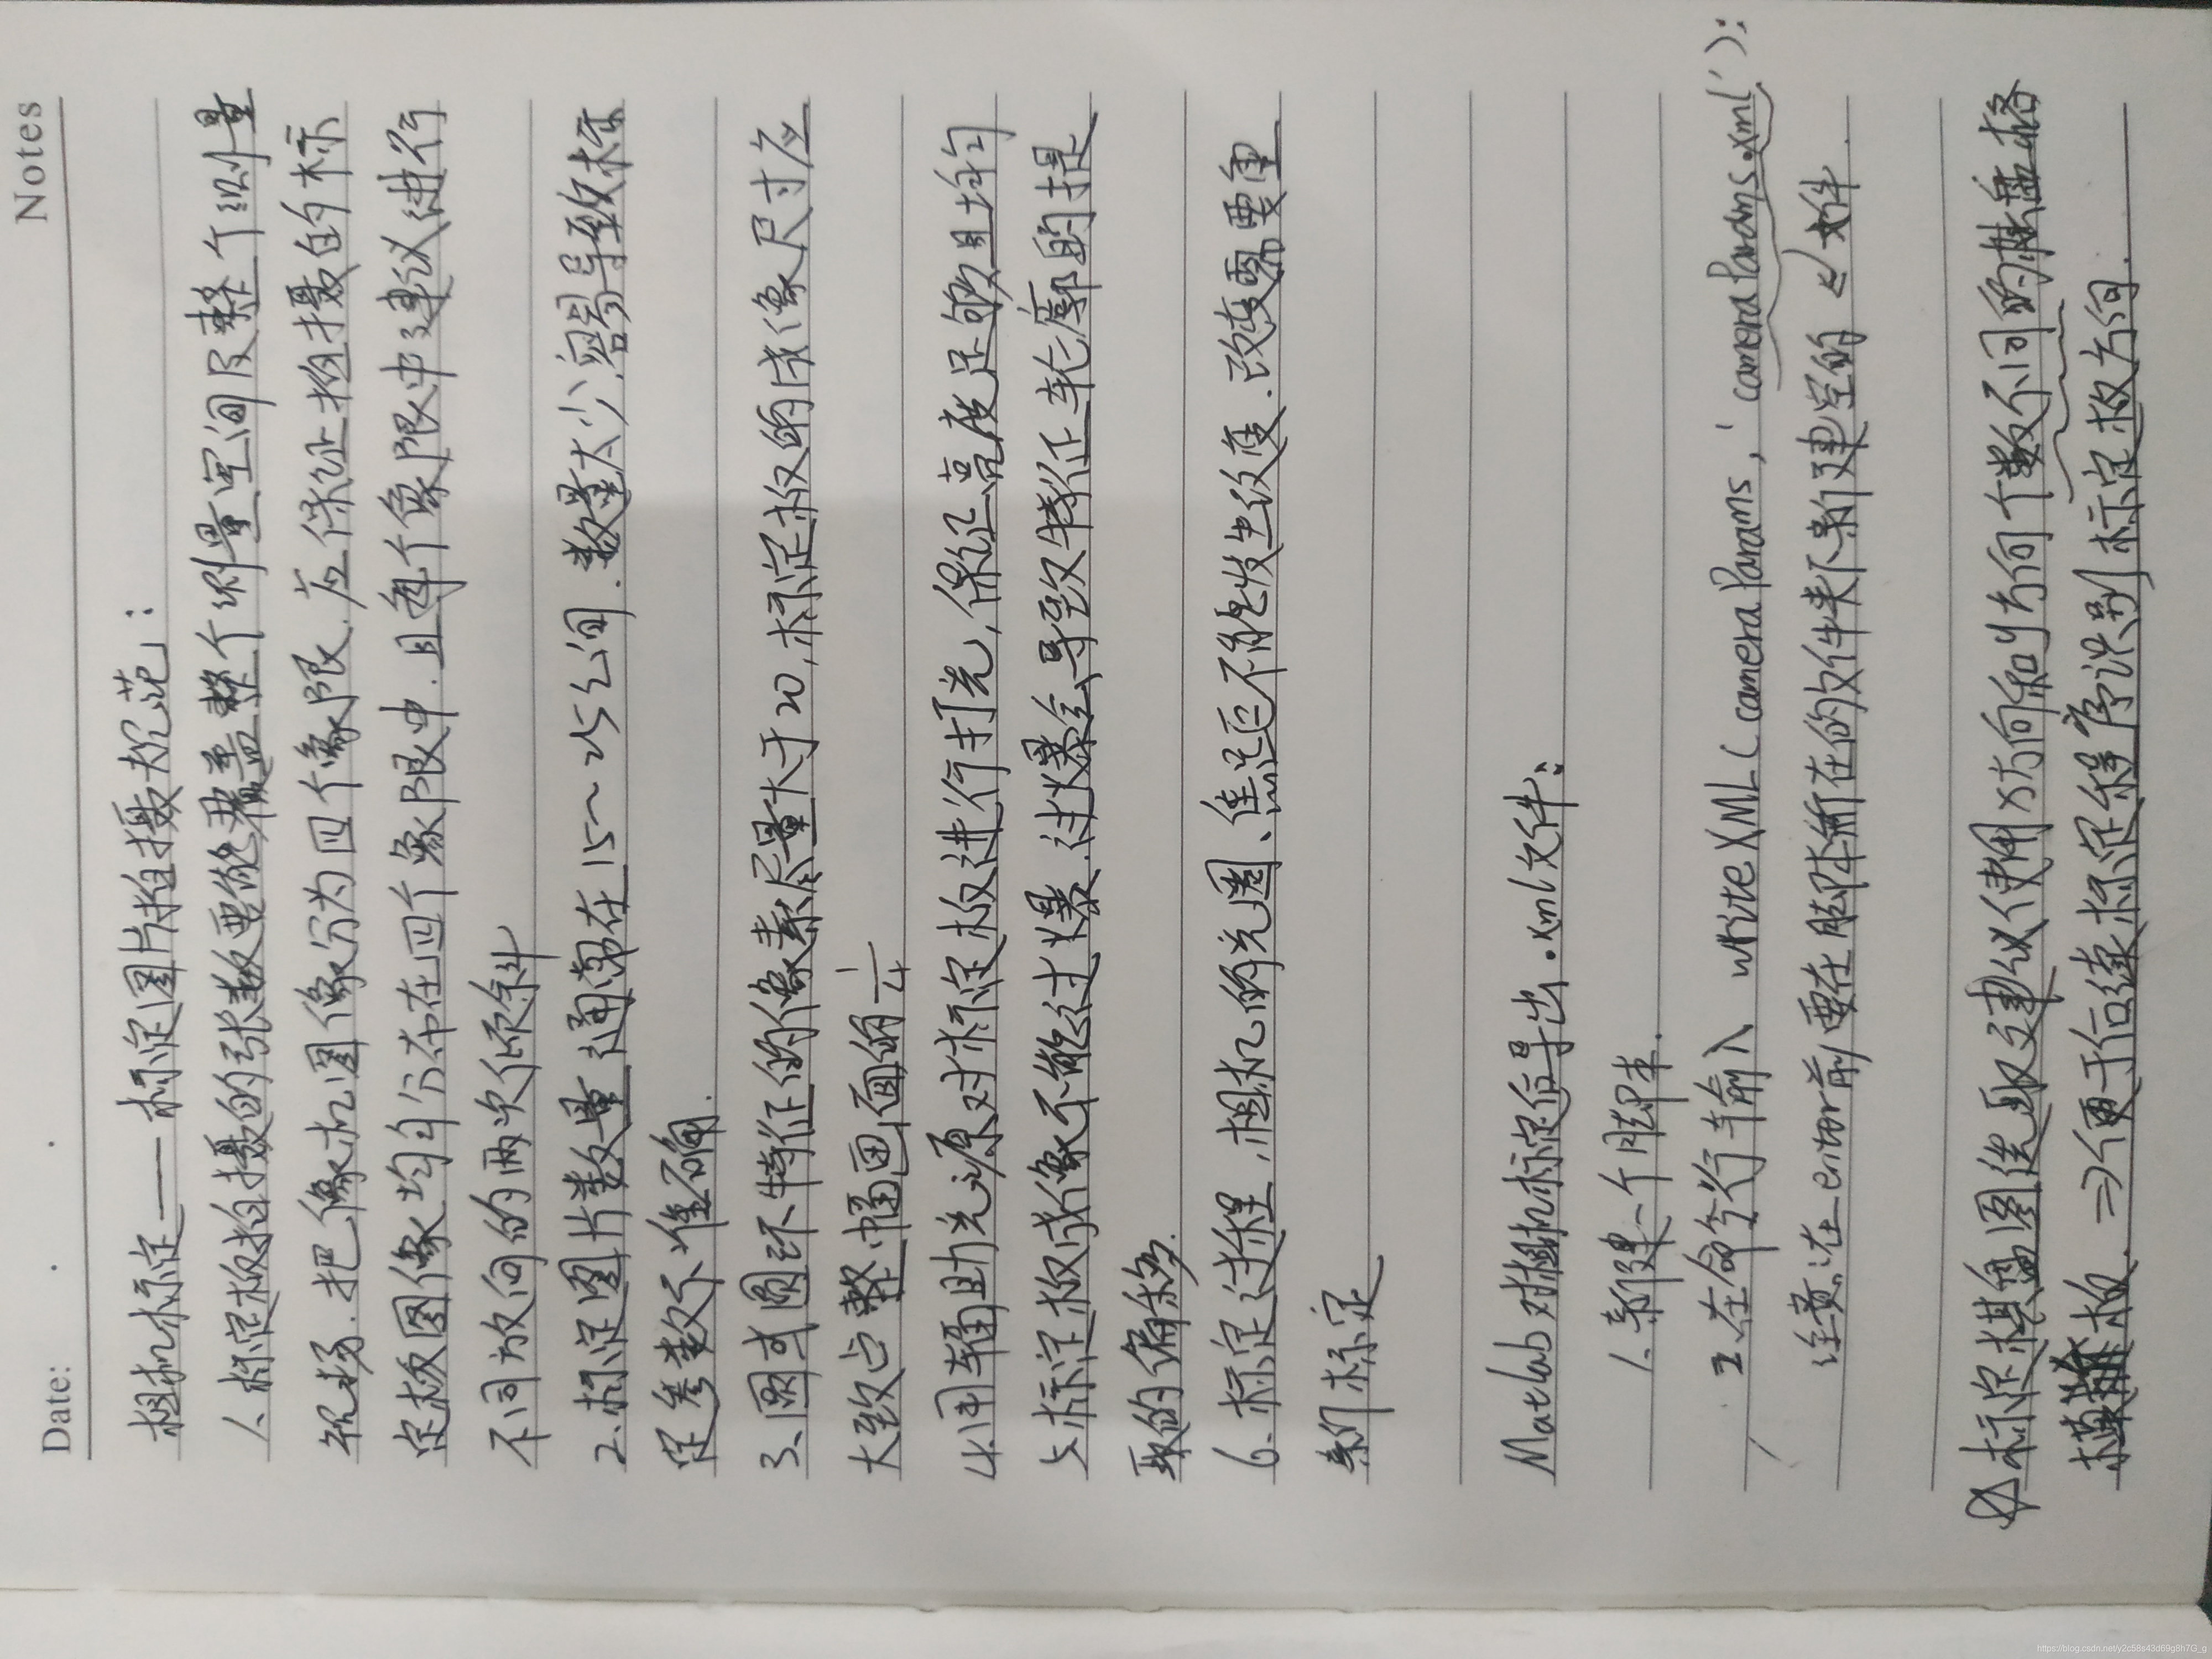 Notes
Date:
相机标定——标定图片拍摄规范：
1、标定板拍摄的张数要能覆盖整个测量空间及整个测量
视场.把像机图像分为四个象限.应保证拍摄的标
定板图像均匀分布在四个象限中.且每个象限中建议进行
不同方向的两次倾斜
2、标定图片数量通常在15~25之间.数量太少.容易导致标
定参数不准确.
3、圆或圆环特征的像素尽量大于20,标定板的成像尺寸应
大致占整幅画面的1/4
4.用辅助光源对标定板进行打光,保证亮度足够且均匀
5、标定板成像不能过爆.过爆会导致特征轮廓的提
取的偏移.
6、标定过程,相机的光圈、焦距不能发生改变.改变需要重
新标定
Matlab对相机标定后导出.xml文件:
1、新建一个脚本.
2.在命令行输入 writeXML(cameraParams,'cameraParams.xml'):
注意:在enter前要在脚本所在的文件夹下新建空的 ↙ 文件.
标定棋盘图选取建议使用x方向和y方向个数不同的棋盘格
板. ⇒便于后续标定程序识别标定板方向.
https://blog.csdn.net/y2c58s43d69g8h7G_g